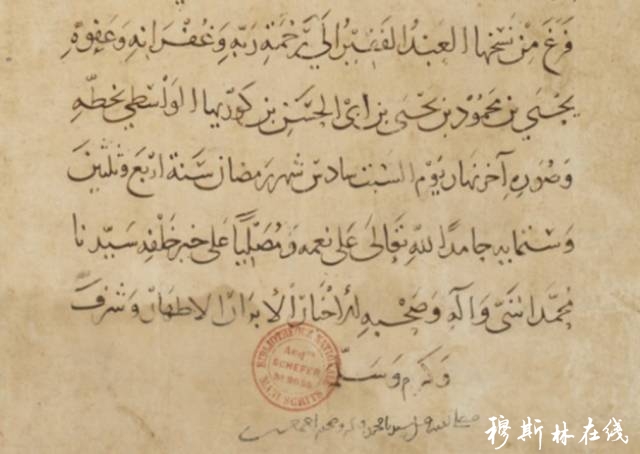 فرغ من نسخها العبد الفقير الى رحمة ربه وغفرانه وعفوه
يحيى بن محمود بن يحيى بن ابى الحسن بن كوريها الواسطي بخطه
وصوره آخر نهار يوم السبت سادس شهر رمضان سنة اربع وثلثين
وستمايه حامدا لله تعالى على نعمه ومصليا على خير خلقه سيدنا
محمد النبى وآله وصحبه الأخيار الأبرار الاطهار وشرف
وكرم وسلم
BIBLIOTHEQUE NATIONALE
SCHEFER
MANUSCRITS
穆斯林在线